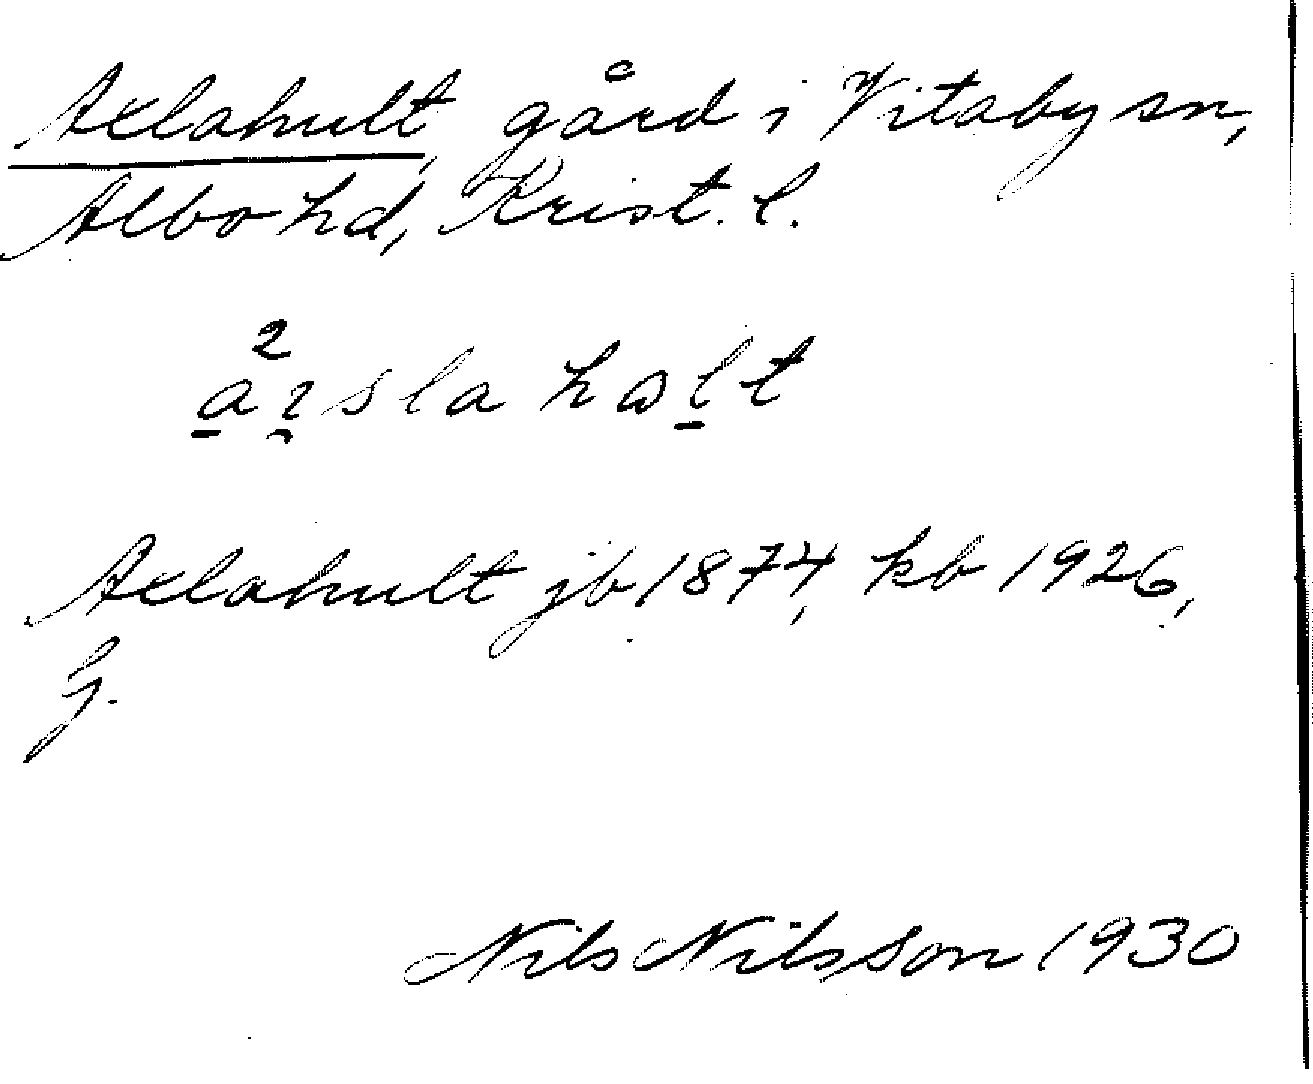 Axlahult, gård i Vitaby sn,
Albo hd, Krist. l.
a²ɿslahɷlt
Axlahult jb 1874, kb 1926,
Nils Nilsson 1930